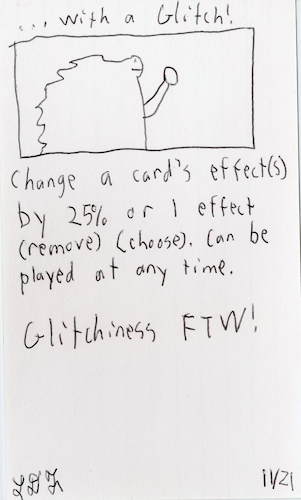 ... with a Glitch!
Change a card's effect(s)
by 25% or 1 effect
(remove) (choose). Can be
played at any time.
Glitchiness FTW!
11/21